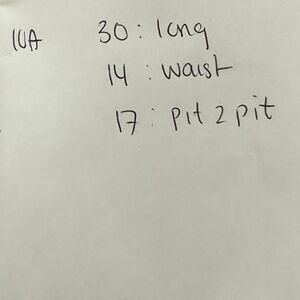 10A 30: long
14: waist
17: pit 2 pit